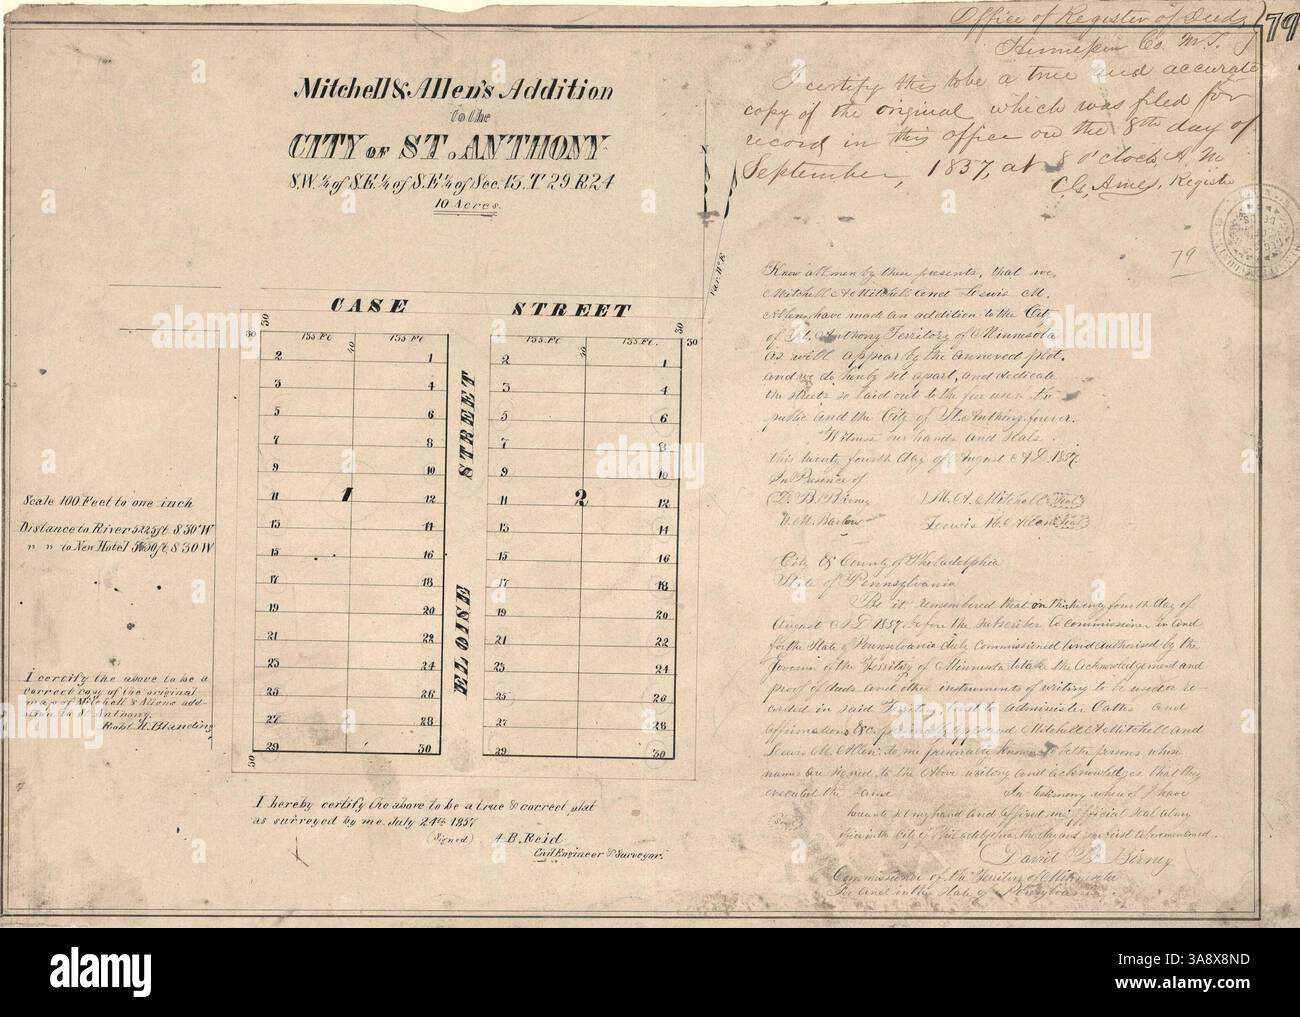 79
Office of Register of Deeds
Hennepin Co. M.T.
I certify this to be a true and accurate
copy of the original which was filed for
record in this office on the 8th day of
September, 1857, at 8 o'clock A. M
C.G. Ames, Register
Mitchell & Allen's Addition
to the
CITY OF ST. ANTHONY
S.W.¼ of S.E.¼ of S.E.¼ of Sec. 13. T 29. R 24
10 Acres.
N
Var. 11° E
79
DEEDS
CASE STREET
30 30 30 30
155 Ft 40 155 Ft. 155 Ft. 40 155 Ft.
2 1 2 1
3 4 3 4
5 6 5 6
7 8 7 8
9 10 9 10
11 1 12 11 2 12
13 14 13 14
15 16 15 16
17 18 17 18
19 20 19 20
21 22 21 22
23 24 23 24
25 26 25 26
27 28 27 28
29 30 29 30
30
ELOISE STREET
Scale 100 Feet to one inch
Distance to River 5225 ft S 30° W
" " to New Hotel ft S 30 W
I certify the above to be a
correct copy of the original
map of Mitchell & Allens add-
ition to St Anthony.
Robt. H. Blanding
I hereby certify the above to be a true & correct plat
as surveyed by me July 24th 1857
(Signed) A. B. Reid
Civil Engineer & Surveyor.
Know all men by these presents, that we,
Mitchell A Mitchell and Lewis M.
Allen, have made an addition to the City
of St. Anthony Territory of Minnesota
as will appear by the annexed plot.
and we do hereby set apart, and dedicate
the streets so laid out to the free use of the
public and the City of St. Anthony forever.
Witness our hands and seals.
this twenty fourth day of August A.D. 1857.
In Presence of
D. B. Birney M. A. Mitchell Seal
W. M. Barlow Lewis M. Allen Seal
City & County of Philadelphia
State of Pennsylvania
Be it remembered that on this twenty fourth day of
August A.D 1857 before the subscriber a commissioner in and
for the State of Pennsylvania duly commissioned and authorised by the
Governor of the Territory of Minnesota to take the acknowledgement and
proof of deeds and other instruments of writing to be used or re
corded in said Territory and to administer Oaths and
affirmations &c. personally appeared Mitchell A Mitchell and
Lewis M. Allen to me personally known to be the persons whose
names are signed to the above writing and acknowledges that they
executed the same In testimony whereof I have
hereunto set my hand and affixed my official seal at my
office in the City of Philadelphia the day and year first aforementioned.
David B. Birney
Commissioner of the Territory of Minnesota
for and in the State of Pennsylvania
a alamy
alamy
Image ID: 3A8X8ND
www.alamy.com